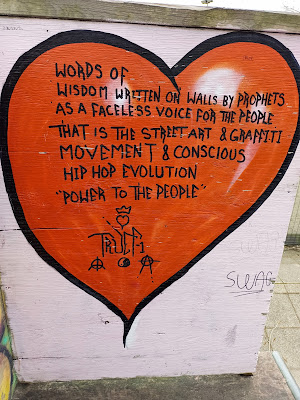 WORDS OF
WISDOM WRITTEN ON WALLS BY PROPHETS
AS A FACELESS VOICE FOR THE PEOPLE
THAT IS THE STREET ART & GRAFFITI
MOVEMENT & CONSCIOUS
HIP HOP EVOLUTION
"POWER TO THE PEOPLE"
SWAG